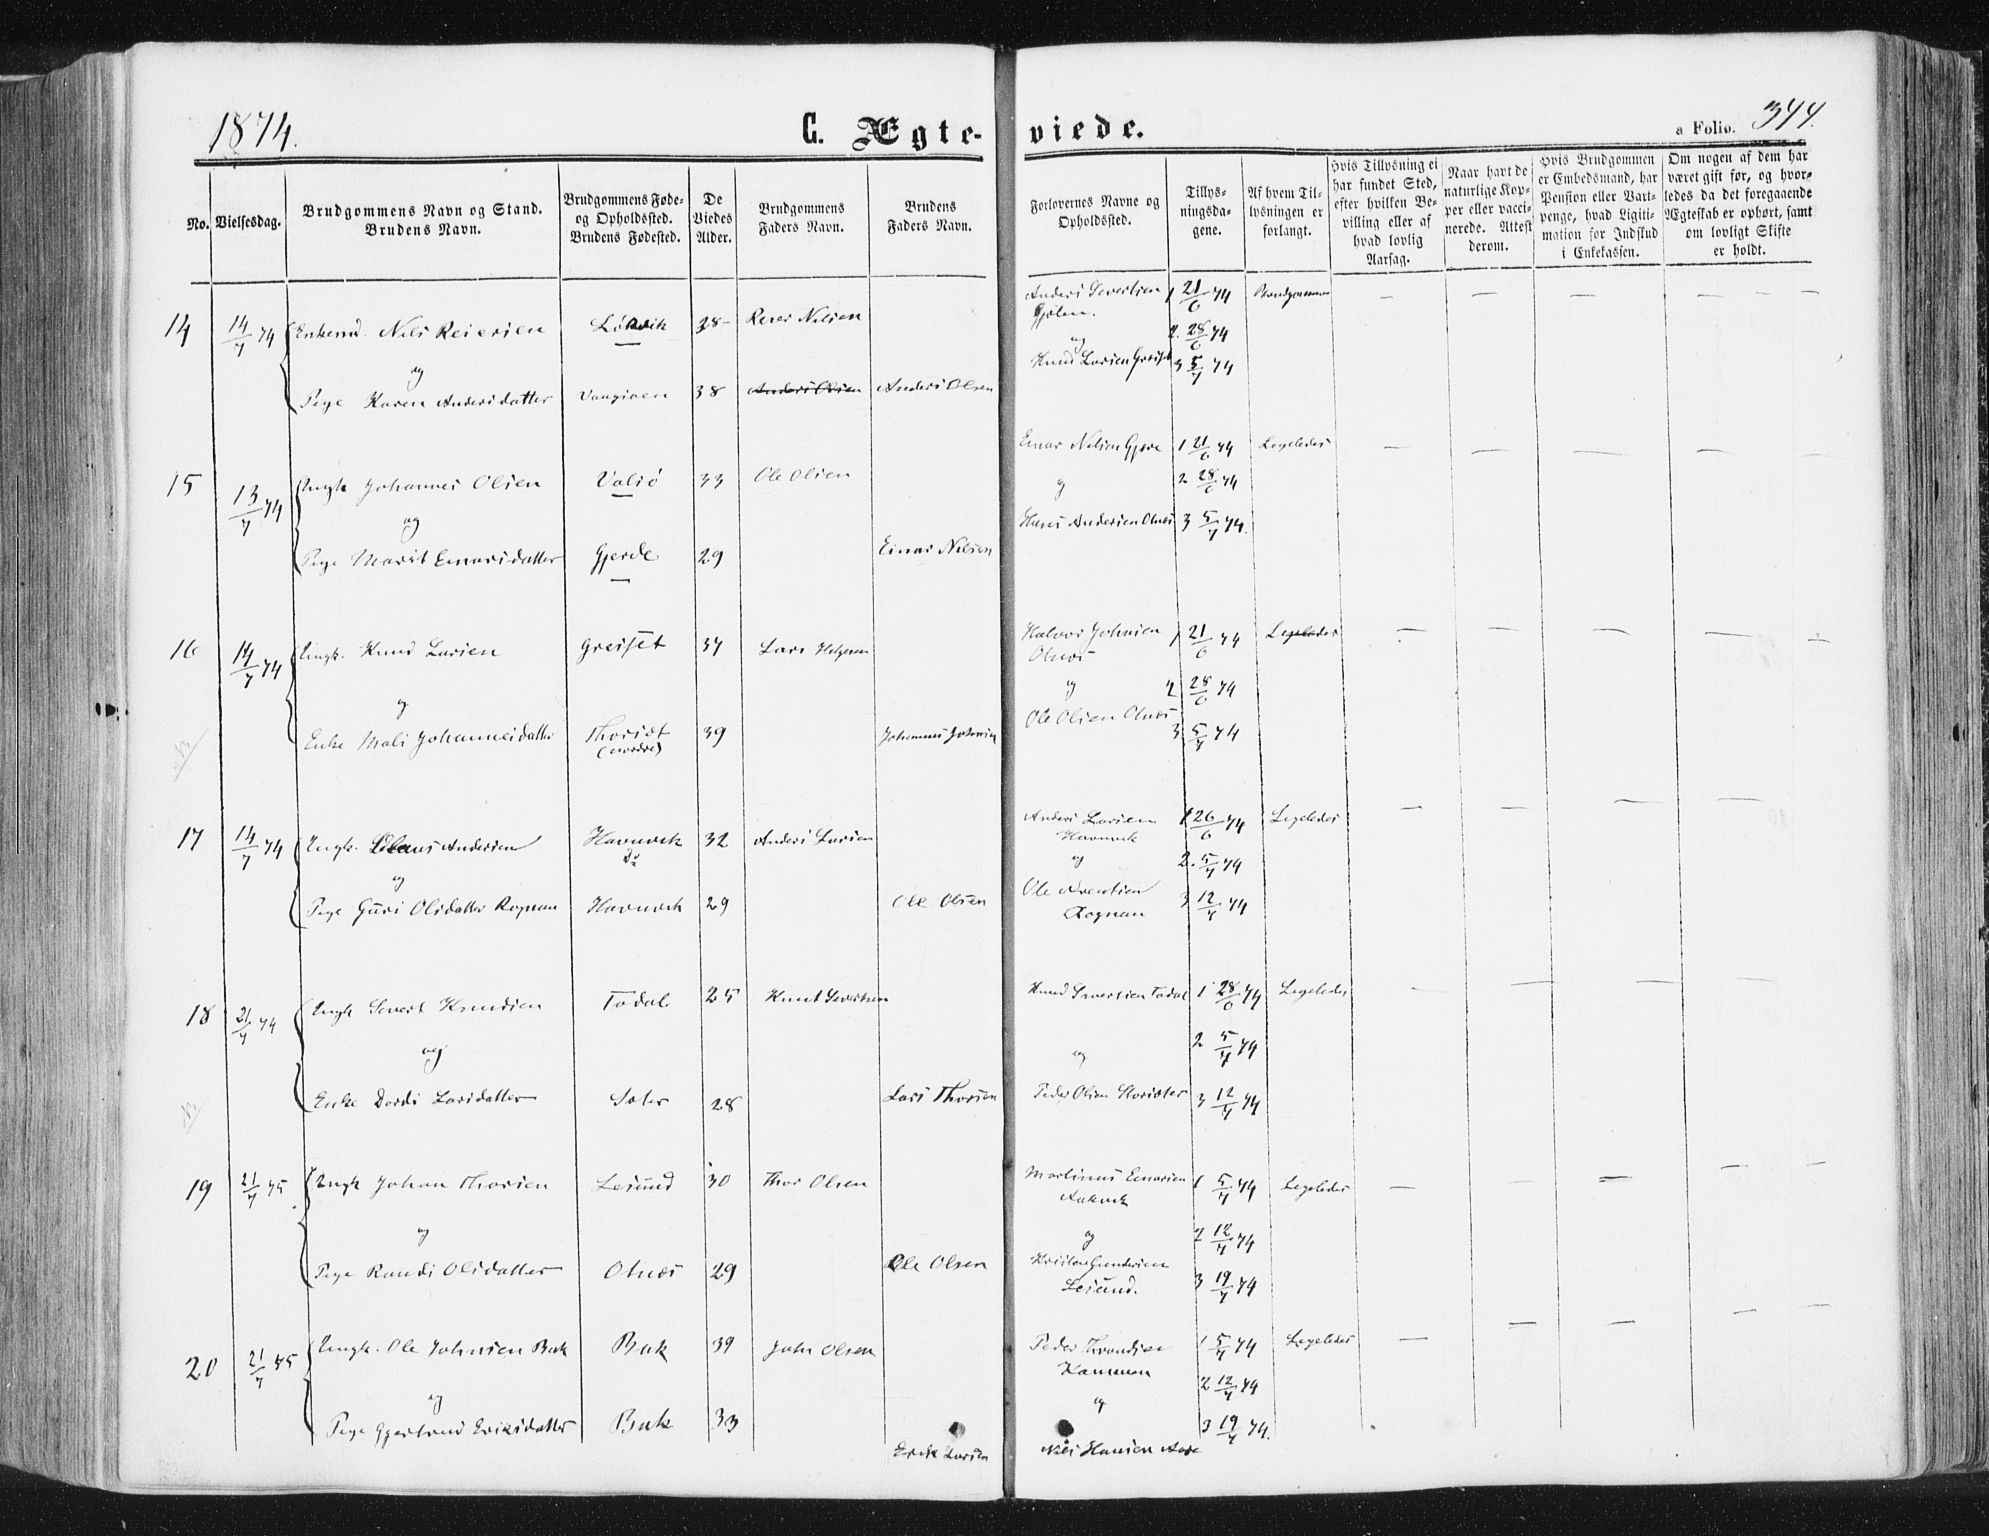 1874.
C. Ægteviede.
a Folio. 344.
No.
Vielsesdag.
Brudgommens Navn og Stand.
Brudens Navn.
Brudgommens Føde-
og Opholdssted.
Brudens Fødested.
De
Viedes
Alder.
Brudgommens
Faders Navn.
Brudens
Faders Navn.
Forlovernes Navne og
Opholdssted.
Tillys-
ningsda-
gene.
Af hvem Til-
lysningen er
forlangt.
Hvis Tillysning ei
har fundet Sted,
efter hvilken Be-
villing eller af
hvad lovlig
Aarsag.
Naar havt de
naturlige Kop-
per eller vacci-
nerede. Attest
derom.
Hvis Brudgommen
er Embedsmand, har
Pension eller Vart-
penge, hvad Ligiti-
mation for Indskud
i Enkekassen.
Om nogen af dem har
været gift før, og hvor-
ledes da det foregaaende
Ægteskab er ophørt, samt
om lovligt Skifte
er holdt.
14 14/7 74 Enkemd. Nils Reiersen 38 Reier Nilsen
og
Pige Karen Andersdatter 38 Anders Olsen Anders Olsen
Anders Sivertsen 1 21/6 74 Brudgommen
2. 28/6 74
og
Knud Larsen Greiset 3 5/7 74
15 13/7 74 Ungk Johannes Olsen Valsö 33 Ole Olsen
og
Pige Marit Einarsdatter Gjerde 29 Einar Nilsen
Einar Nilsen Gjere 1 21/6 74 Ligeledes
og 2 28/6 74
Hans Andersen Otnes 3 5/7 74.
16 14/7 74 Ungk. Knud Larsen Greiset 37 Lars Helgesen
og
Enke Mali Johannesdatter Thorset 39 Johannes Johnsen
(nordre)
Halvor Johnsen 1 21/6 74 Ligeledes
Otnes
og 2 28/6 74
Ole Olsen Otnes
3 5/7 74
17 14/7 74 Ungk. Claus Andersen Havnvik 32 Anders Larsen
og
Pige Guri Olsdatter Rognan Havnvik 29 Ole Olsen
Anders Larsen 1 26/6 74 Ligeledes
Havnvik
og 2. 5/7 74
Ole Arentsen 3 12/7 74
Rognan
18 21/7 74 Ungk Sivert Knudsen Todal 25 Knut Sivertsen
og
Enke Dordi Larsdatter Sæter 28 Lars Thorsen
Knud Sivertsen Todal 1 28/6 74 Ligeledes
og 2 5/7 74
Peder Olsen 3 12/7 74
19 21/7 75 Ungk Johan Thorsen Leisund 30 Thor Olsen
og
Pige Randi Olsdatter Otnes 29 Ole Olsen
Martinus Einarsen 1 5/7 74 Ligeledes
Aakvik
og 2 12/7 74
Kristen Gundersen
Leisund. 3 19/7 74
20 21/7 75 Ungk. Ole Johnsen Bæk Bæk 39 John Olsen
og
Pige Gjertrud Eriksdatter Bæk 33
Erik Larsen
Peder Throndsen 1 5/7 74 Ligeledes
Hammen
2 12/7 74
og
3 19/7 74.
Nils Hansen Aase